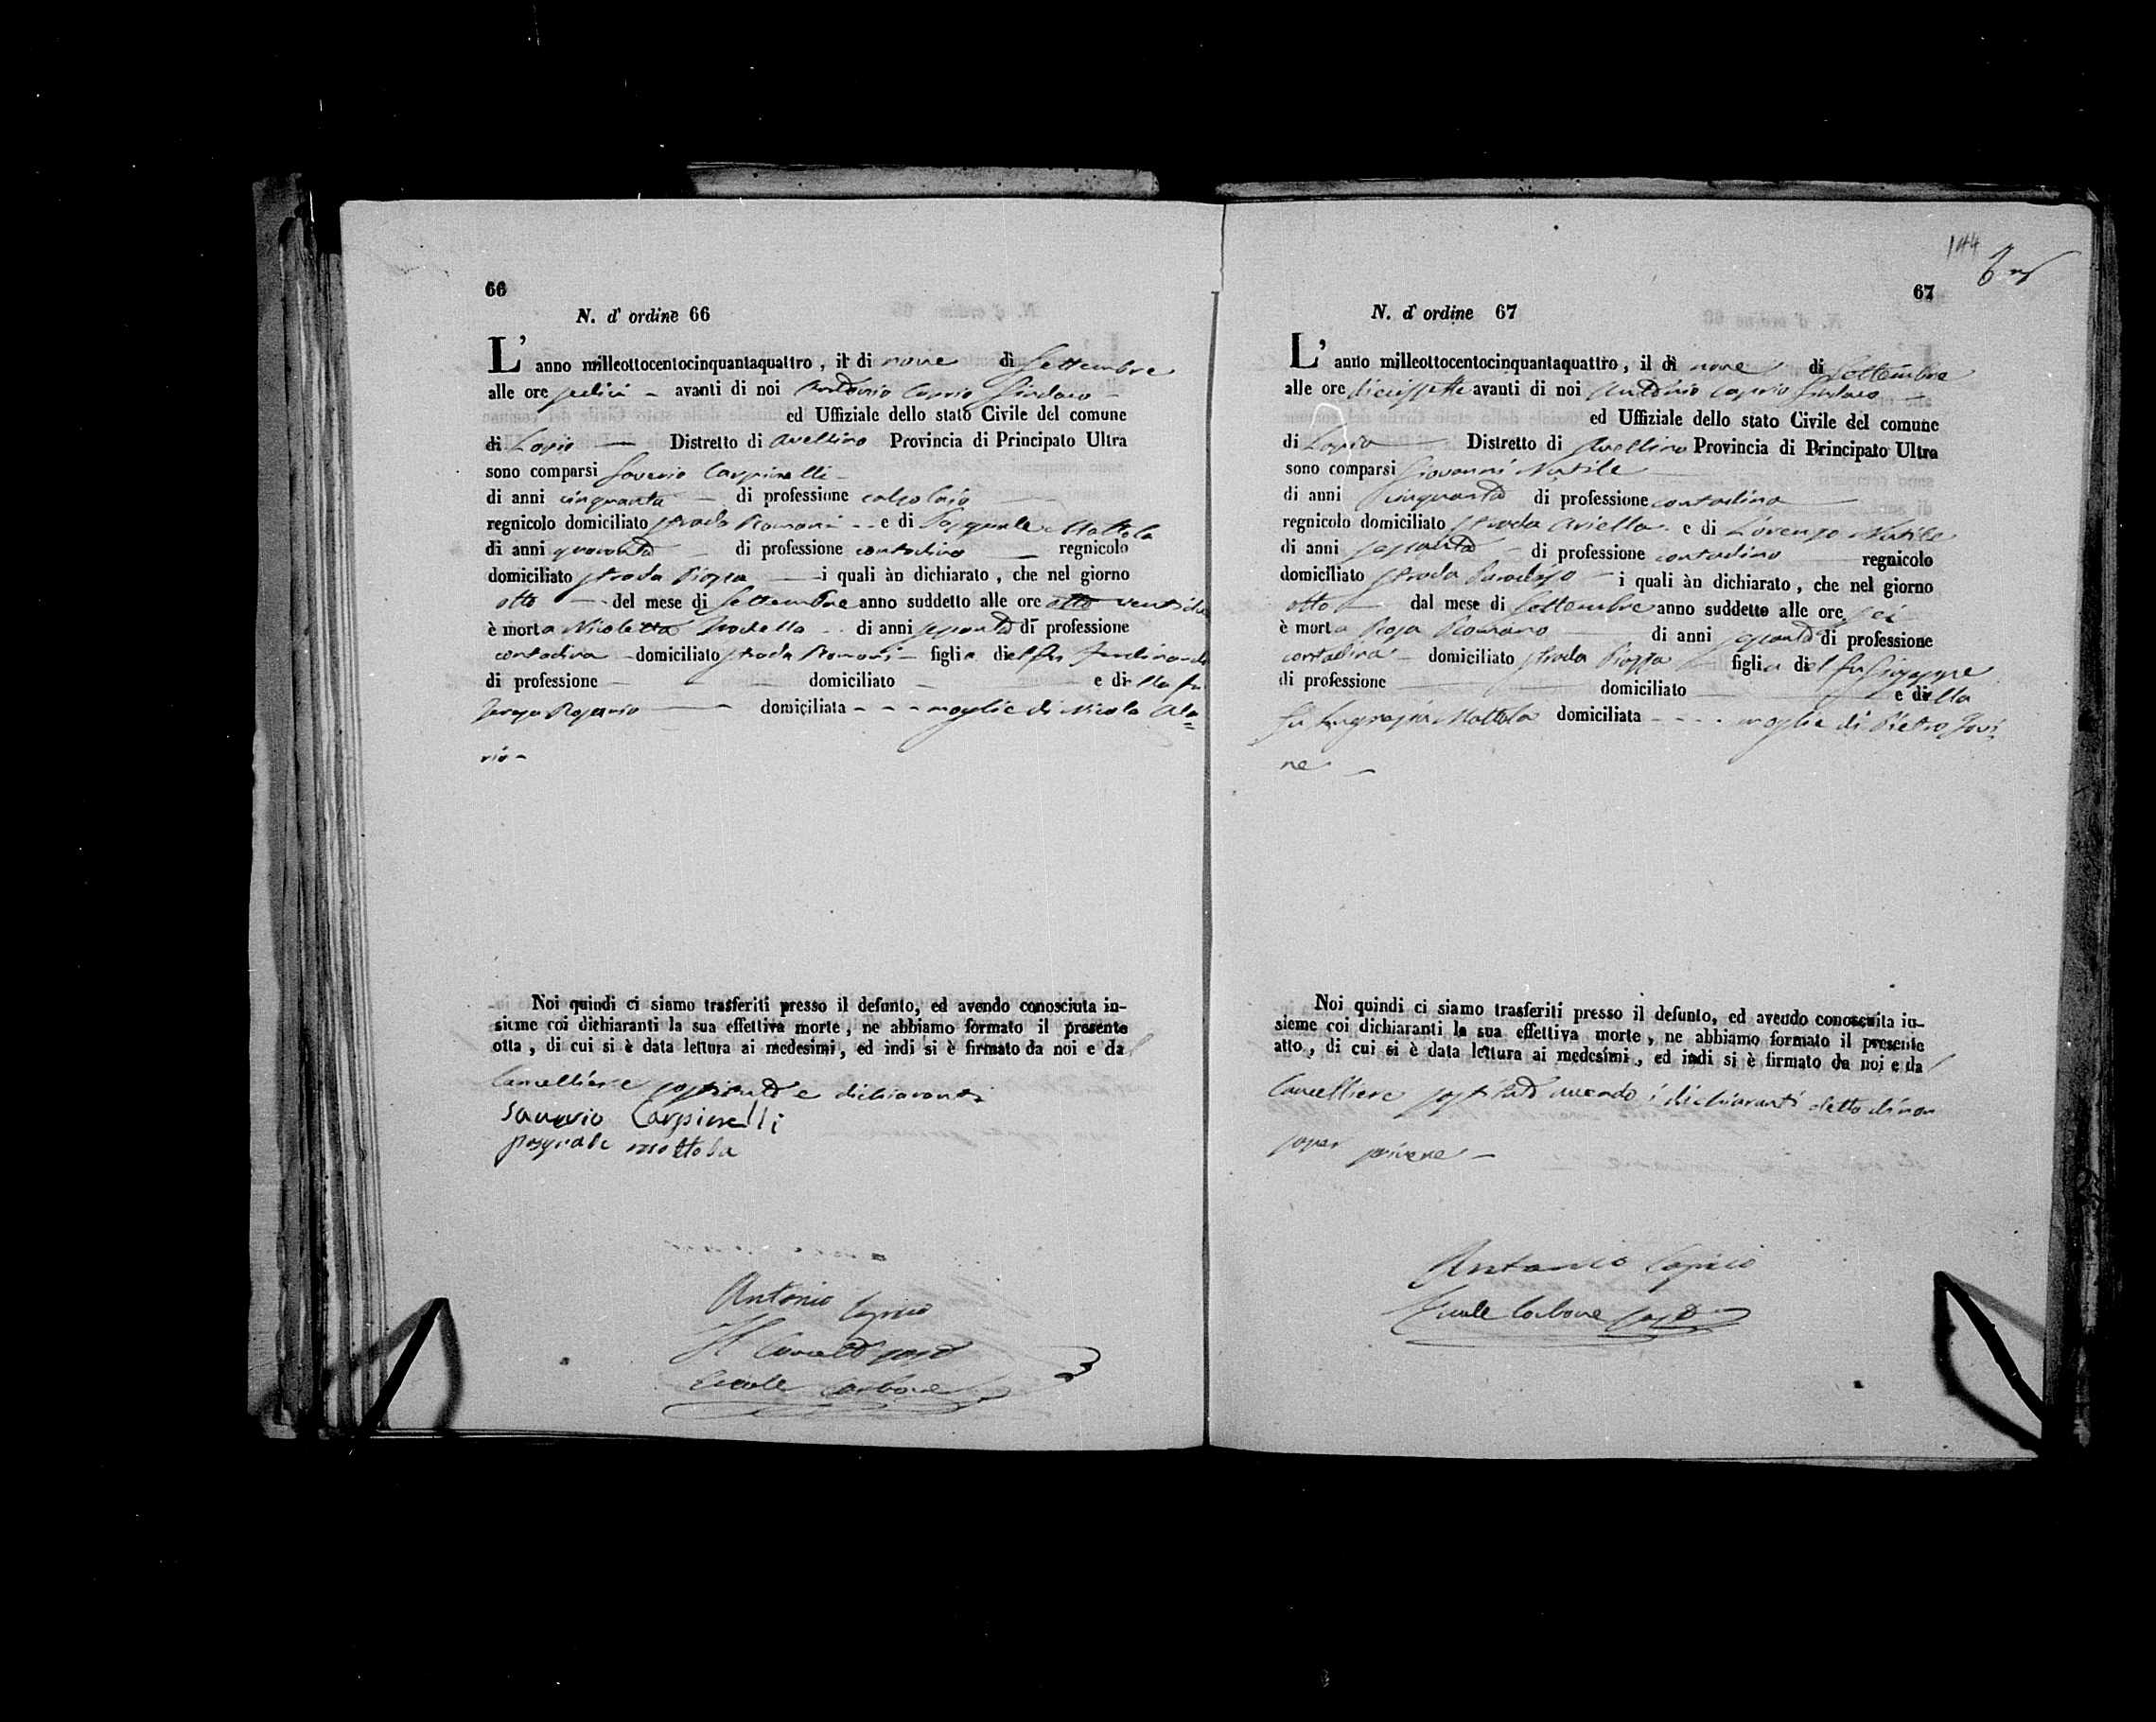 66
N. d' ordine 66
L' anno milleottocentocinquantaquattro, il di nove di Settembre
alle ore sedici - avanti di noi Antonio Caprio Sindaco -
ed Uffiziale dello stato Civile del comune
di Lapio — Distretto di Avellino Provincia di Principato Ultra
sono comparsi Saverio Carpinelli -
di anni cinquanta - di professione calzolaio —
regnicolo domiciliato strada Romani - e di Pasquale Mottola
di anni quaranta - di professione contadino — regnicolo
domiciliato strada Piazza — i quali àn dichiarato, che nel giorno
otto — del mese di Settembre anno suddetto alle ore otto
è morta Nicoletta di anni sessanta di professione
contadina - domiciliato strada Romani - figlia del fu Ferdinando
di professione — domiciliato — e della fu
Rosario — domiciliata - - - moglie di Nicola
rio -
Noi quindi ci siamo trasferiti presso il defunto, ed avendo conosciuta in-
sieme coi dichiaranti la sua effettiva morte, ne abbiamo formato il presente
otta, di cui si è data lettura ai medesimi, ed indi si è firmato da noi e da
Cancelliere sostituto e dichiaranti
Saverio Carpinelli
pasquale mottola
Antonio Caprio
Il Cancell sost
Ercole Carbone
144
67
N. d' ordine 67
L' anno milleottocentocinquantaquattro, il di nove di Settembre
alle ore diciissette avanti di noi Antonio Caprio Sindaco —
ed Uffiziale dello stato Civile del comune
di Lapio — Distretto di Avellino Provincia di Principato Ultra
sono comparsi Giovanni Nutile —
di anni cinquanta di professione contadino —
regnicolo domiciliato strada Ariella e di Lorenzo Nutile
di anni sessanta - di professione contadino — regnicolo
domiciliato strada Paradiso - i quali àn dichiarato, che nel giorno
otto — dal mese di Settembre anno suddetto alle ore sei
è morta Rosa Romano — di anni sessanta di professione
contadina - domiciliato strada Piazza — figlia del fu Giuseppe
di professione — domiciliato — e della
fu Mottola domiciliata - - - moglie di Pietro Iovi
ne —
Noi quindi ci siamo trasferiti presso il defunto, ed avendo conosciuta in-
sieme coi dichiaranti la sua effettiva morte, ne abbiamo formato il presente
atto, di cui si è data lettura ai medesimi, ed indi si è firmato da noi e da
Cancelliere sostituto avendo i dichiaranti detto di non
saper scrivere -
Antonio Caprio
Ercole Carbone sost